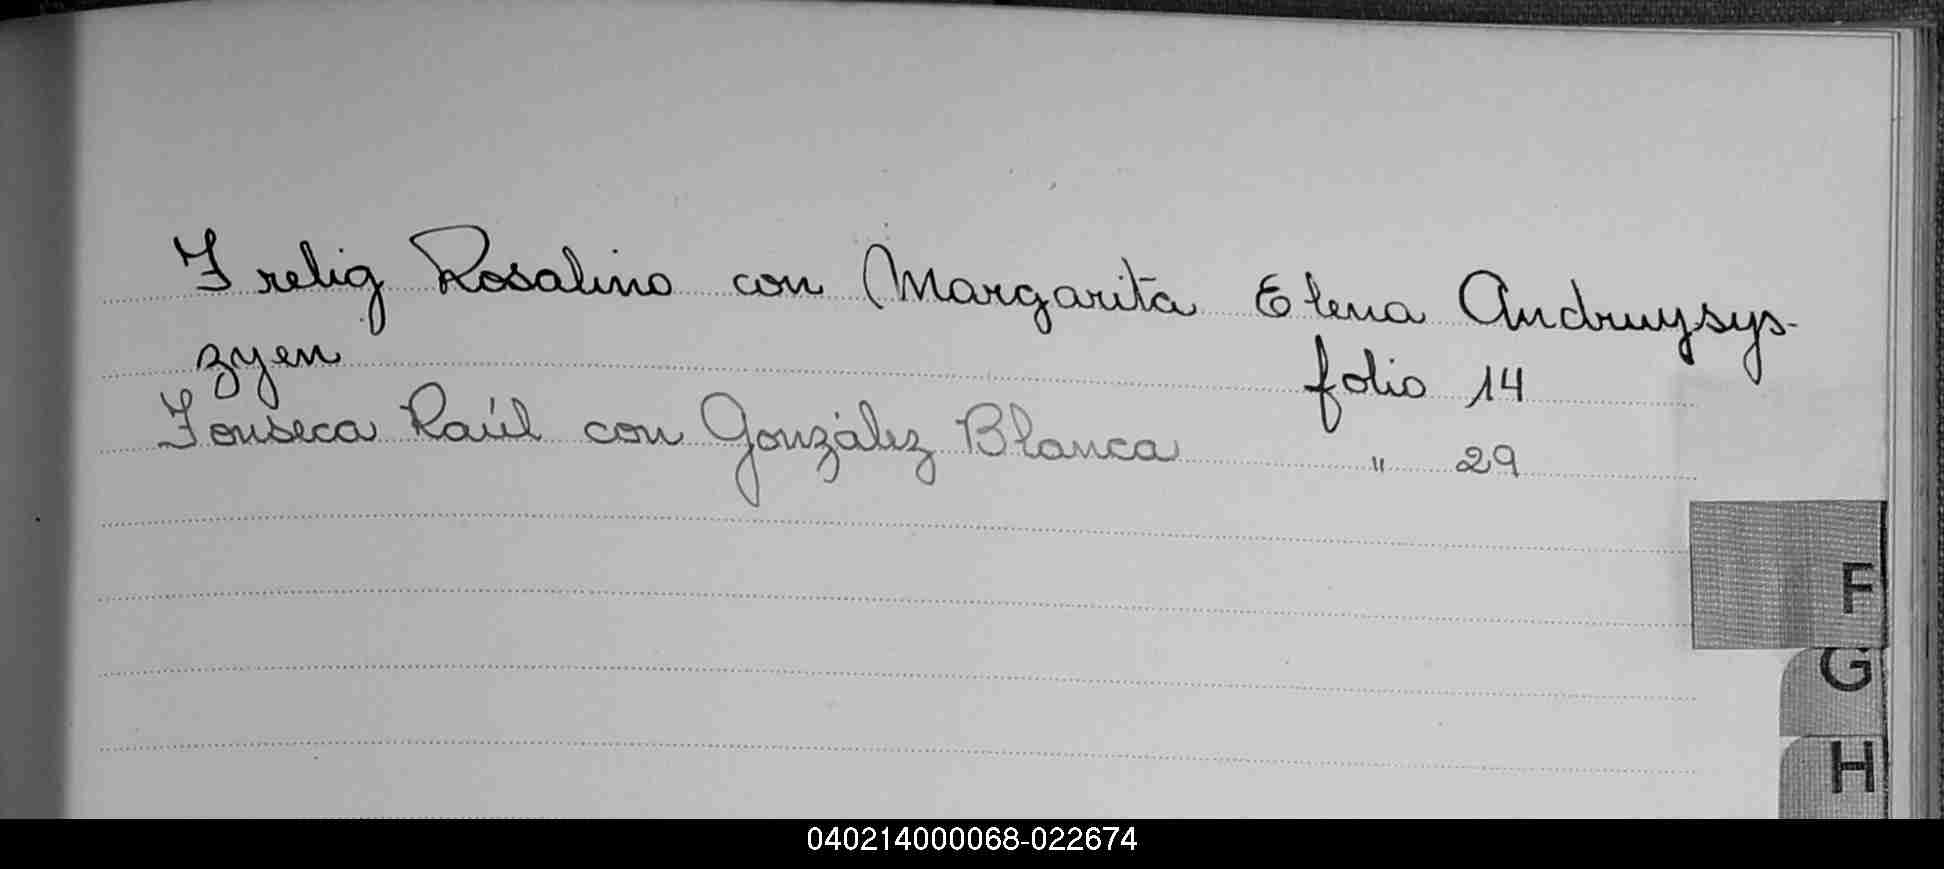 Frelig Rosalino con Margarita Elena Andruysys-
zyen
folio 14
Fonseca Raúl con González Blanca " 29
F
G
H
040214000068-022674